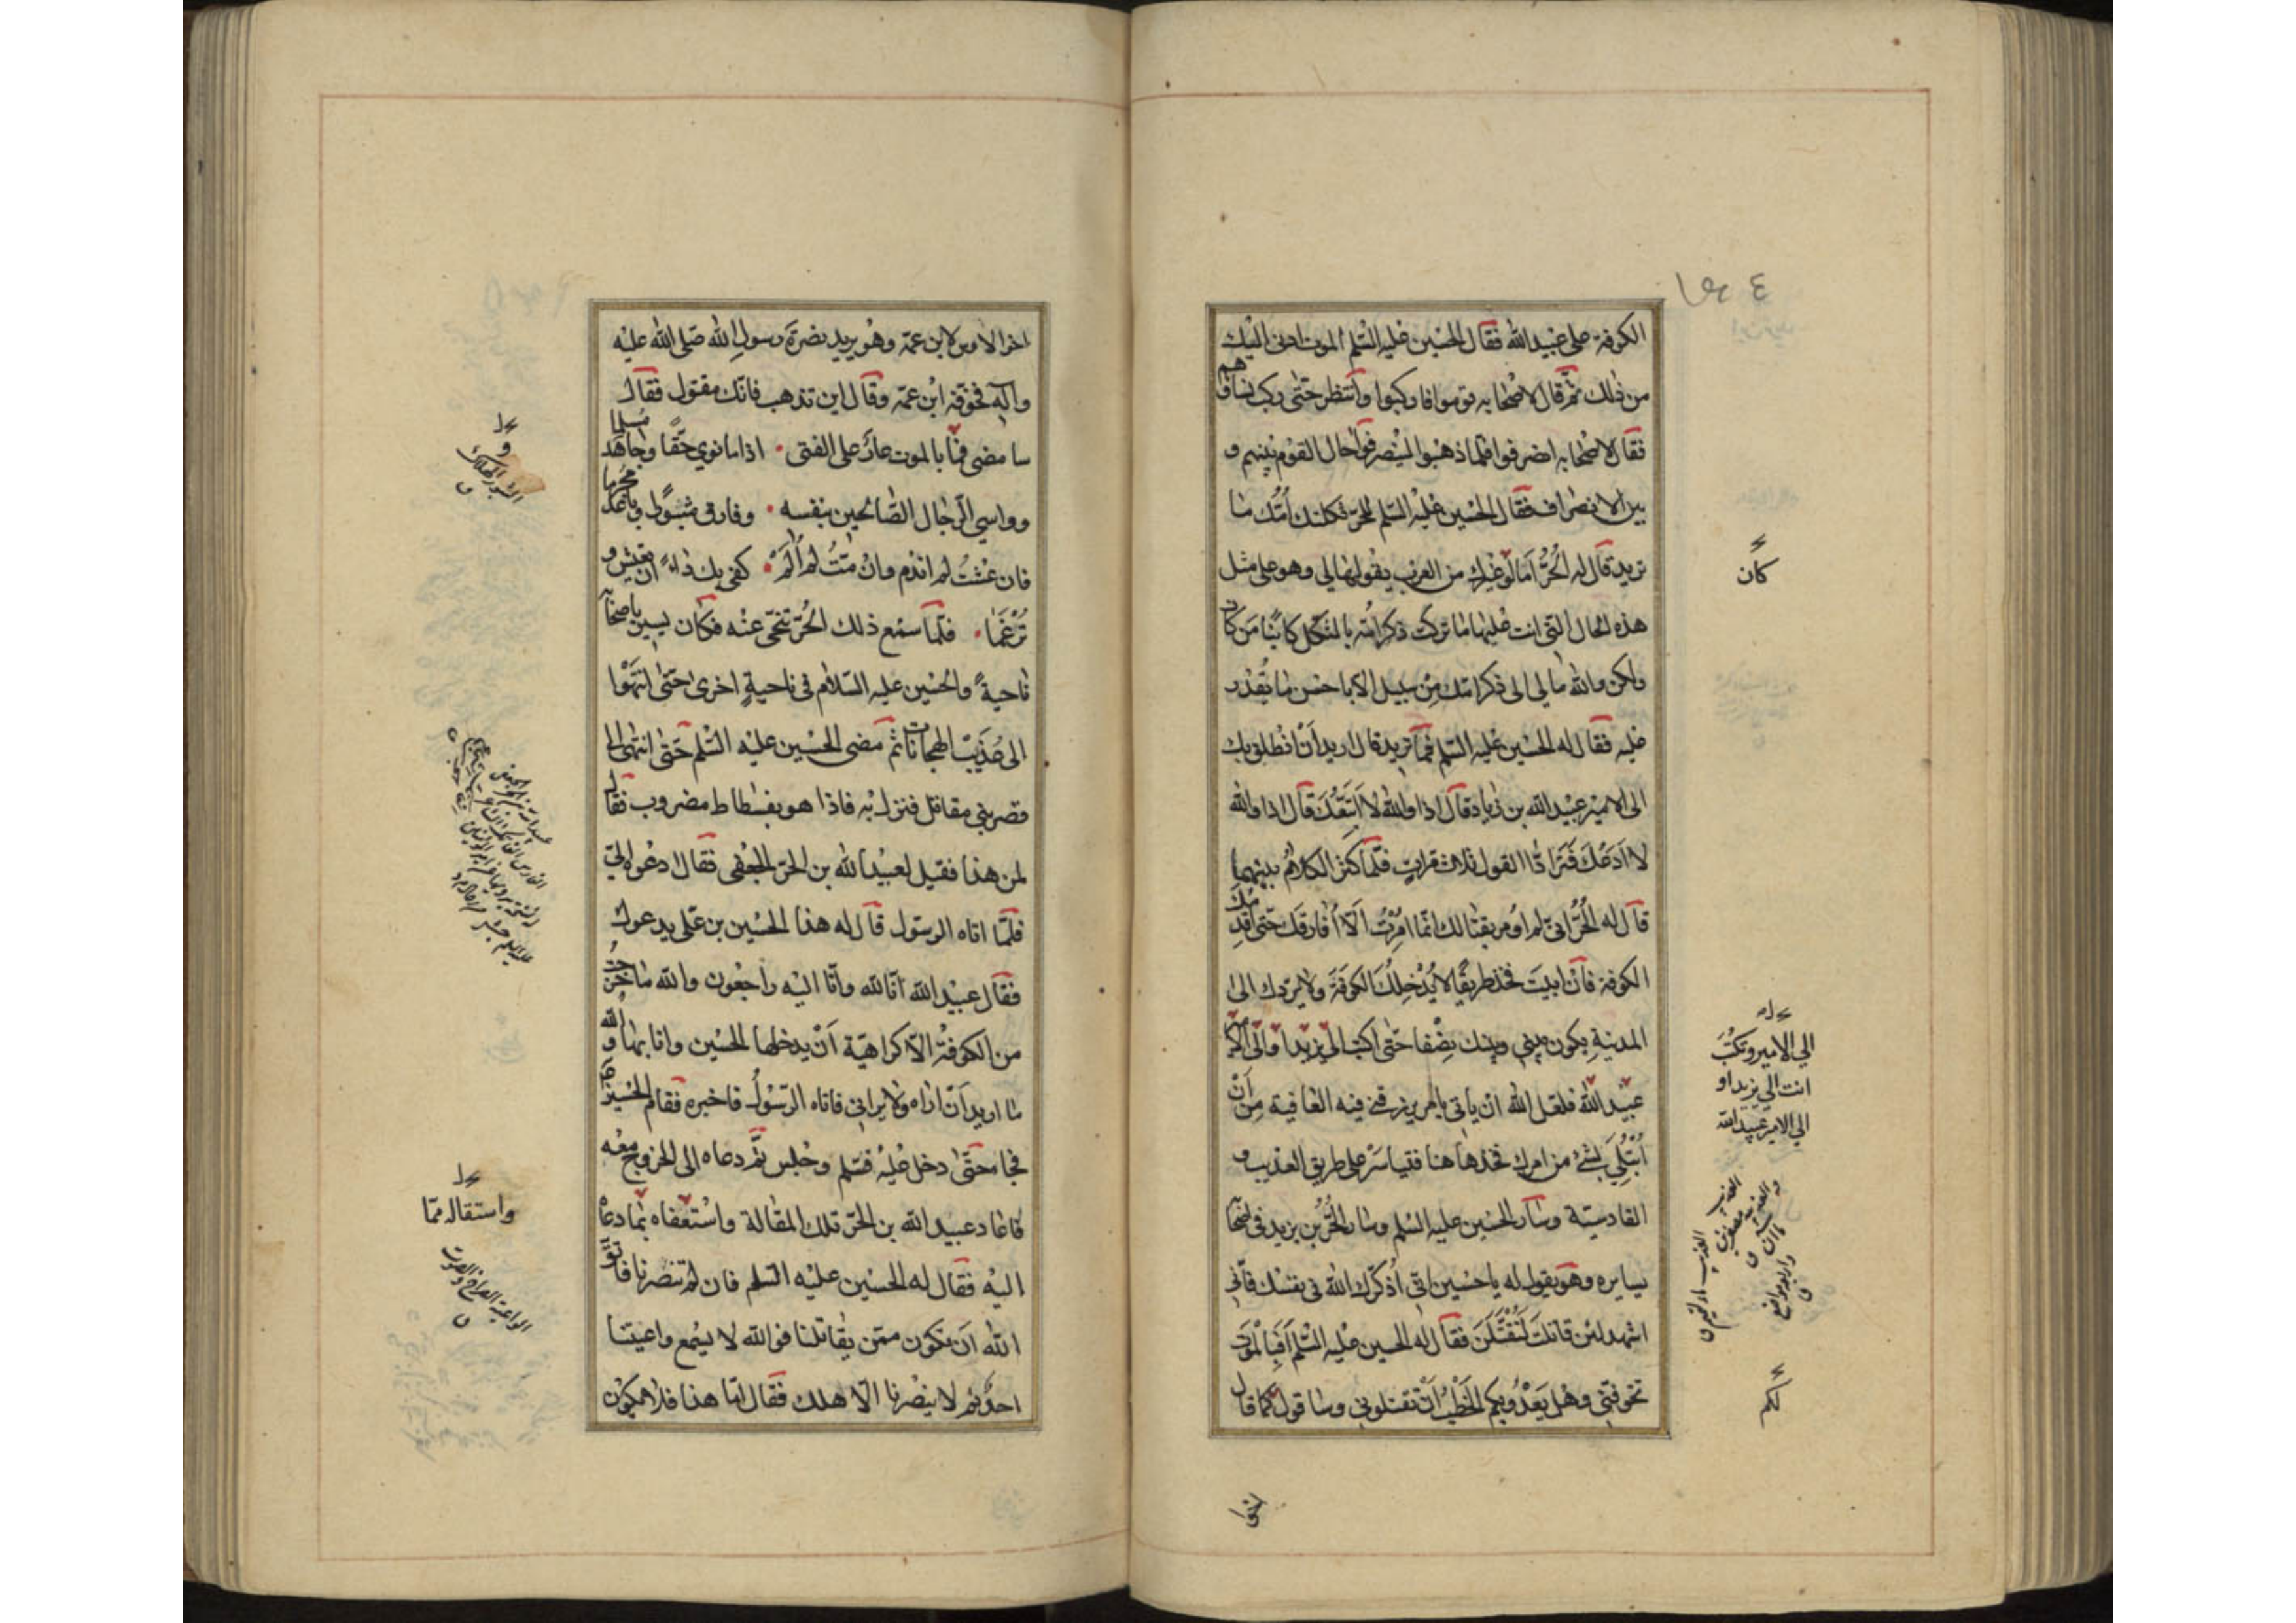 الكوفة على عبيد الله فقال الحسين عليه السلم الموت ادنى اليك
من ذلك ثم قال لاصحابه قوموا فاركبوا وانتظر حتى ركب نساؤهم
فقال لاصحابه انصرفوا فلما ذهبوا لينصرفوا حال القوم بينهم و
بين الانصراف فقال الحسين عليه السلم للحر ثكلتك امك ما
تريد قال له الحر اما لو غيرك من العرب يقولها لي وهو على مثل
هذه الحال التي انت عليها ما تركت ذكر امه بالثكل كائنا من كان
ولكن والله ما لي الى ذكر امك من سبيل الا باحسن ما نقدر
عليه فقال له الحسين عليه السلم فما تريد قال اريد ان انطلق بك
الى الامير عبيد الله بن زياد قال اذا والله لا اتبعك قال اذا والله
لا ادعك فترادا القول ثلاث مرات فلما كثر الكلام بينهما
قال له الحر اني لم اومر بقتالك انما امرت الا افارقك حتى اقدمك
الكوفة فان ابيت فخذ طريقا لا يدخلك الكوفة ولا يردك الى
المدينة يكون بيني وبينك نصفا حتى اكتب الى يزيد او الى
عبيد الله فلعل الله ان ياتي بامر يرزقني فيه العافية من ان
ابتلي بشيء من امرك فخذ هاهنا فتياسر على طريق العذيب و
القادسية وسار الحسين عليه السلم وسار الحر بن يزيد في اصحابه
يسايره وهو يقول له يا حسين اني اذكرك الله في نفسك فاني
اشهد لئن قاتلت لتقتلن فقال له الحسين عليه السلم افبالموت
تخوفني وهل يعدو بكم الخطب ان تقتلوني وساقول كما قال
اخو
كان
الي الامير وتكتب
انت الي يزيد او
الي الامير عبيد الله
لكم
اخو الاوس لابن عمه وهو يريد نصرة رسول الله صلى الله عليه
واله فخوفه ابن عمه وقال اين تذهب فانك مقتول فقال
سامضي فما بالموت عار على الفتى اذا ما نوي حقا وجاهد مسلما
وواسي الرجال الصالحين بنفسه وفارق مثبورا وباعد مجرما
فان عشت لم اندم وان مت لم الم كفى بك ذلا ان تعيش و
ترغما فلما سمع ذلك الحر تنحى عنه فكان يسير باصحابه
ناحية والحسين عليه السلام في ناحية اخرى حتى انتهوا
الى عذيب الهجانات ثم مضى الحسين عليه السلم حتى انتهى الى
قصر بني مقاتل فنزل به فاذا هو بفسطاط مضروب فقال
لمن هذا فقيل لعبيد الله بن الحر الجعفي فقال ادعوه الي
فلما اتاه الرسول قال له هذا الحسين بن علي يدعوك
فقال عبيد الله انا لله وانا اليه راجعون والله ما خرجت
من الكوفة الا كراهية ان يدخلها الحسين وانا بها والله
ما اريد ان اراه ولا يراني فاتاه الرسول فاخبره فقام الحسين
فجاء حتى دخل عليه فسلم وجلس ثم دعاه الى الخروج معه
فاعاد عبيد الله بن الحر تلك المقالة واستعفاه بما دعاه
اليه فقال له الحسين عليه السلم فان لم تنصرنا فاتق
الله ان تكون ممن يقاتلنا فوالله لا يسمع واعيتنا
احد ثم لا ينصرنا الا هلك فقال اما هذا فلا يكون
واستقاله مما